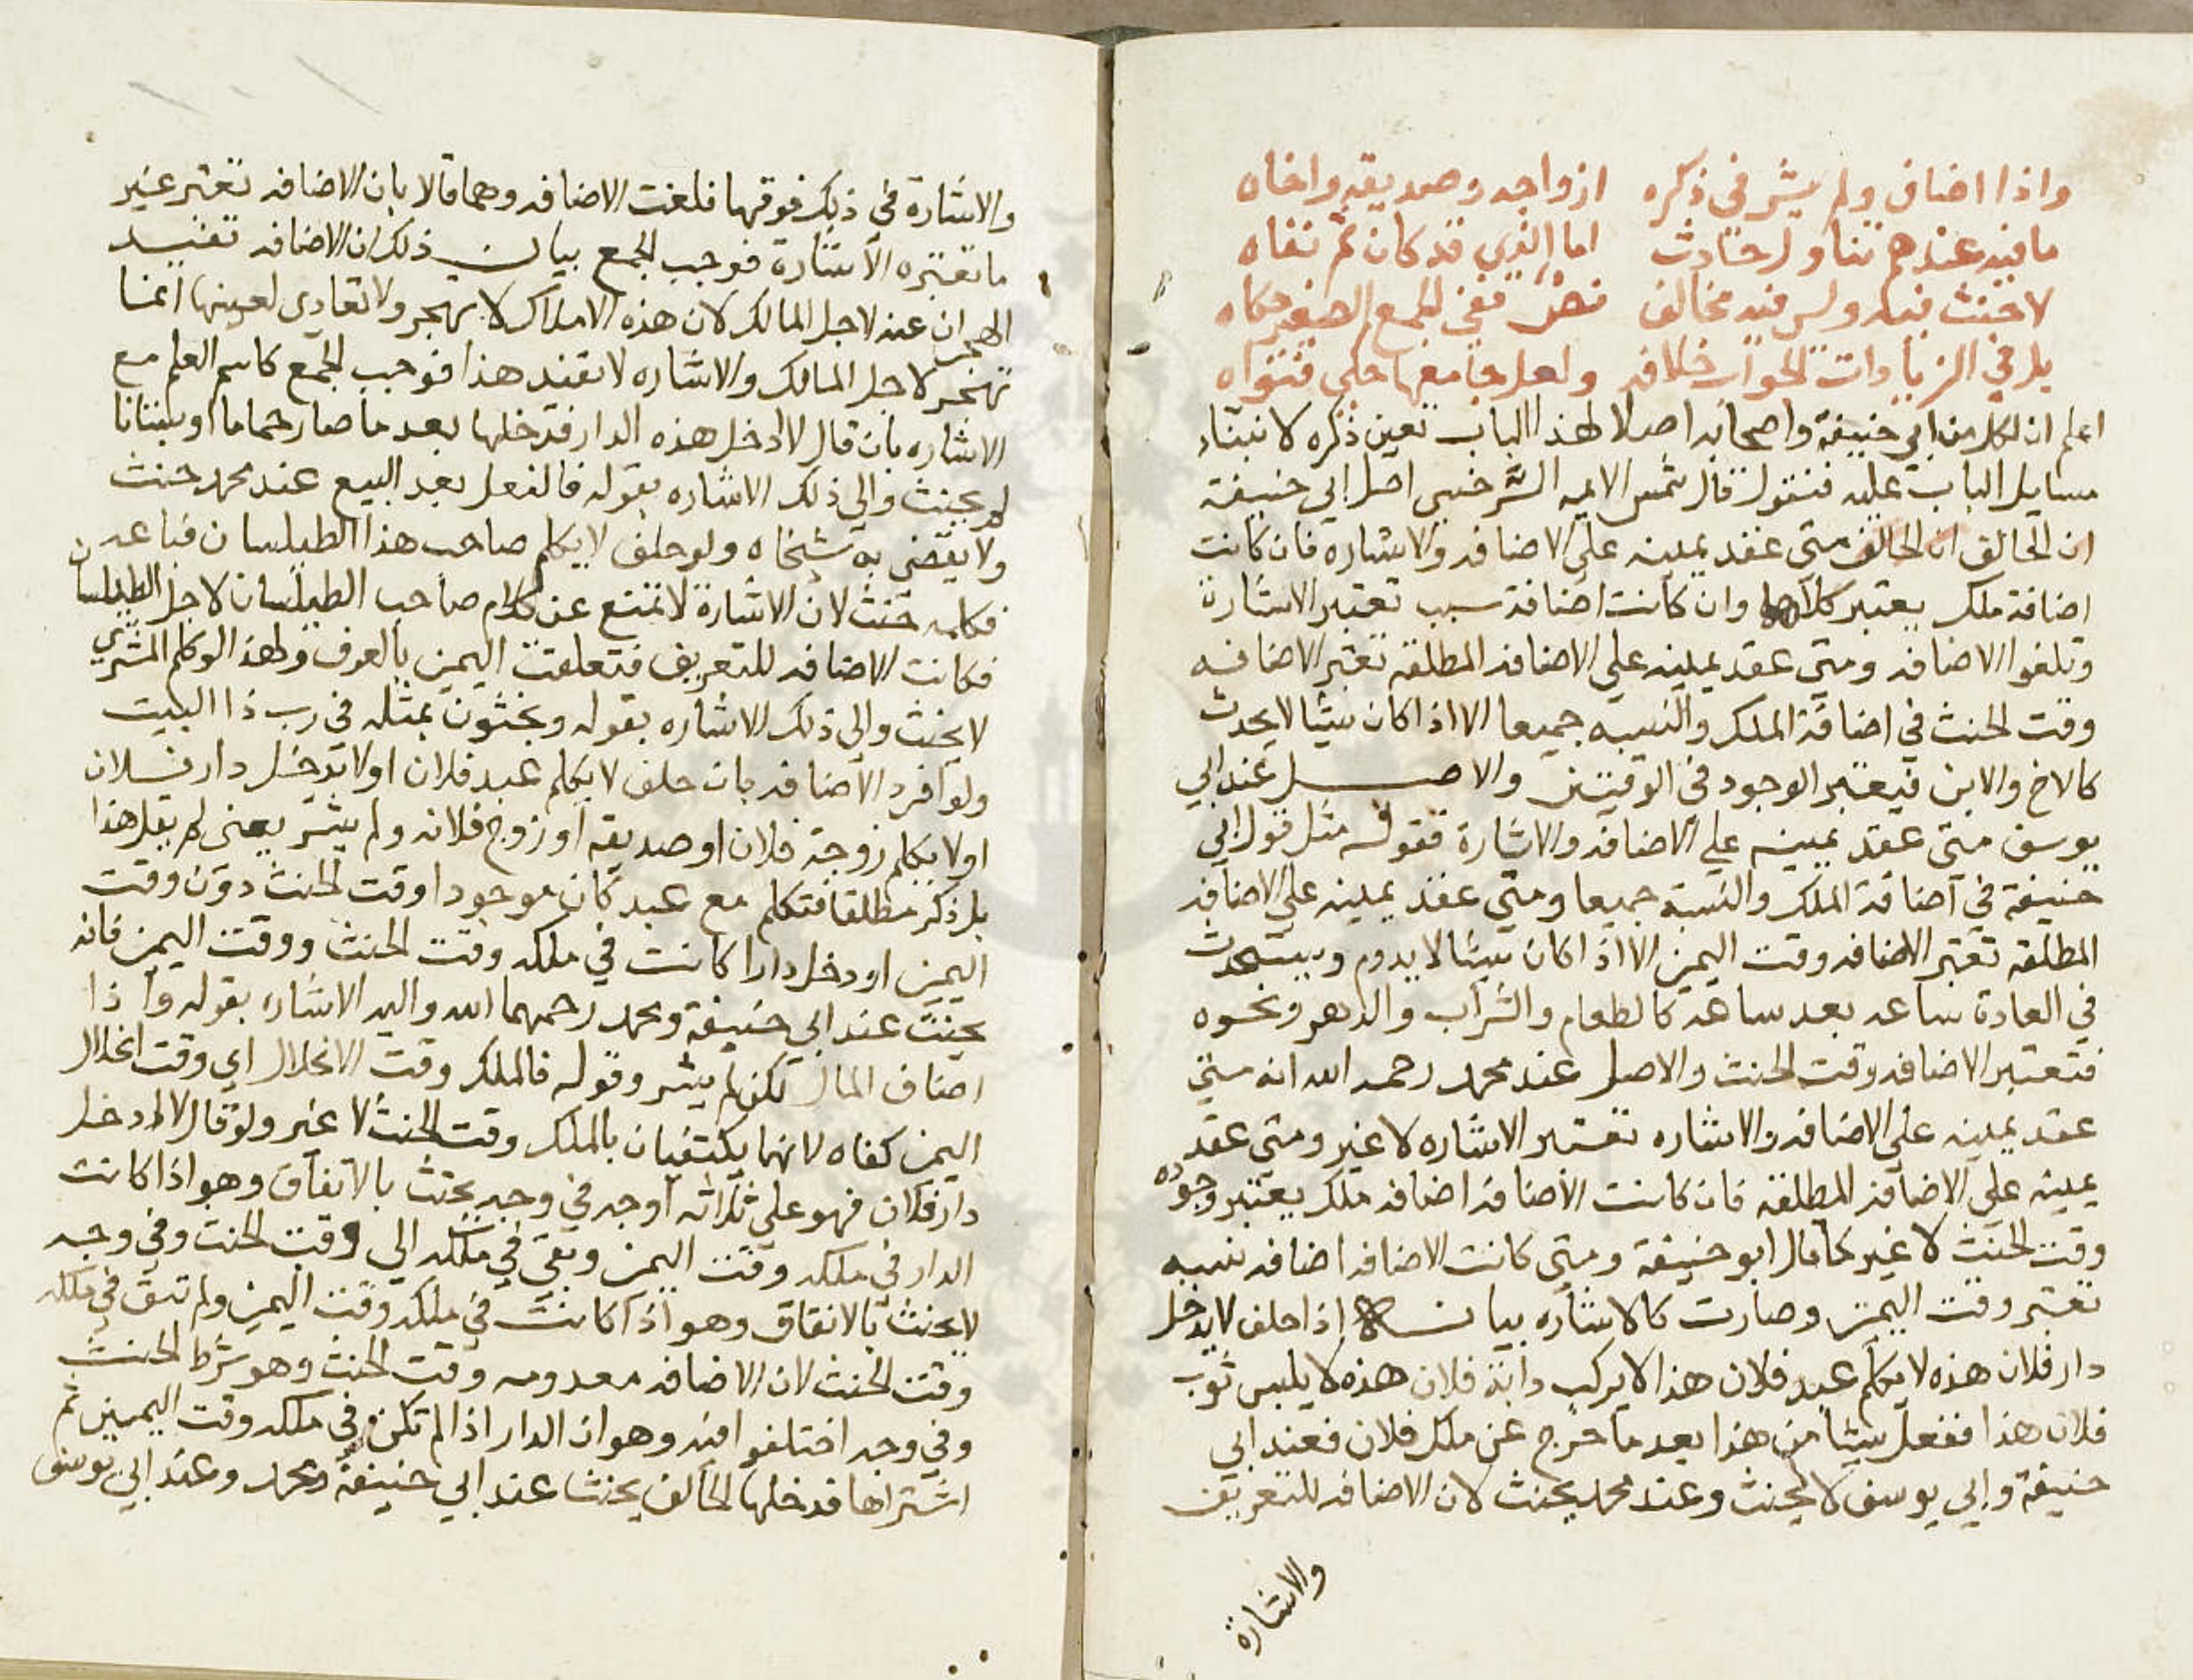 واذا اضاف ولم يشر في ذكره ازواجه وصديقه واخاه
ما فيه عندهم تناول حادث اما الذي قد كان ثم نفاه
لا حنث فيه وليس فيه مخالف نص ففي الجمع الصغير حكاه
بل في الزيادات الجواب خلافه ولعل جامعها حكى فتواه
اعلم ان لكل من ابي حنيفة واصحابه اصلا لهذا الباب تعين ذكره لابتناء
مسايل الباب عليه فنقول قال شمس الايمه السرخسي اصل ابي حنيفة
ان الحالف ان الحالف متى عقد يمينه على الاضافه والاشاره فان كانت
اضافة ملك يعتبر كلاهما وان كانت اضافة سبب تعتبر الاشارة
وتلغوا الاضافه ومتى عقد يمينه على الاضافه المطلقة تعتبر الاضافه
وقت الحنث في اضافة الملك والنسبه جميعا الا اذا كان شيئا لا يحدث
كالاخ والابن فيعتبر الوجود في الوقتين والاصل عند ابي
يوسف متى عقد يمينه على الاضافه والاشارة فقوله مثل قول ابي
حنيفة في اضافة الملك والنسبة جميعا ومتى عقد يمينه على الاضافه
المطلقه تعتبر الاضافه وقت اليمين الا اذا كان شيئا لا يدوم ويستحدث
في العادة ساعه بعد ساعه كالطعام والشراب والدهن ونحوه
فتعتبر الاضافه وقت الحنث والاصل عند محمد رحمه الله انه متى
عقد يمينه على الاضافه والاشاره تعتبر الاشاره لا غير ومتى عقد
يمينه على الاضافه المطلقه فان كانت الاضافه اضافه ملك يعتبر وجوده
وقت الحنث لا غير كما قال ابو حنيفة ومتى كانت الاضافه اضافه نسبه
تعتبر وقت اليمين وصارت كالاشاره بيانه اذا حلف لا يدخل
دار فلان هذه لا يكلم عبد فلان هذا لا يركب دابة فلان هذه لا يلبس ثوب
فلان هذا ففعل شيئا من هذا بعد ما خرج عن ملك فلان فعند ابي
حنيفة وابي يوسف لا يحنث وعند محمد يحنث لان الاضافه للتعريف
والاشارة
والاشارة في ذلك فوقها فلغت الاضافه وهما قالا بان الاضافه تعتبر غير
ما تعتبره الاشارة فوجب الجمع بيان ذلك ان الاضافه تفيد
الهجران عنه لاجل المالك لان هذه الاملاك لا تهجر ولا تعادى لعينها انما
تهجر لاجل المالك والاشاره لا تفيد هذا فوجب الجمع كاسم العلم مع
الاشاره بان قال لا ادخل هذه الدار فدخلها بعد ما صار حماما او بستانا
لم يحنث والى ذلك الاشاره بقوله فالفعل بعد البيع عند محمد حنث
ولا يقضي به شيخاه ولو حلف لا يكلم صاحب هذا الطيلسان فباعه
فكلمه حنث لان الاشارة لا تمنع عن كلام صاحب الطيلسان لاجل الطيلسان
فكانت الاضافه للتعريف فتعلقت اليمين بالعرف ولهذا لو كلم المشتري
لا يحنث والى ذلك الاشاره بقوله ويحنثون بمثله في رب ذا البيت
ولو افرد الاضافه بان حلف لا يكلم عبد فلان او لا يدخل دار فلان
او لا يكلم زوجة فلان او صديقه او زوج فلانه ولم يشر يعني لم يقل هذا
بل ذكر مطلقا فتكلم مع عبد كان موجودا وقت الحنث دون وقت
اليمين او دخل دارا كانت في ملكه وقت الحنث ووقت اليمين فانه
يحنث عند ابي حنيفة ومحمد رحمهما الله واليه الاشاره بقوله واذا
اضاف المال لكن لم يشر وقوله فالملك وقت الانحلال اي وقت انحلال
اليمين كفاه لانهما يكتفيان بالملك وقت الحنث لا غير ولو قال لا ادخل
دار فلان فهو على ثلاثه اوجه في وجه يحنث بالاتفاق وهو اذا كانت
الدار في ملكه وقت اليمين وبقى في ملكه الى وقت الحنث وفي وجه
لا يحنث بالاتفاق وهو اذا كانت في ملكه وقت اليمين ولم تبق في ملكه
وقت الحنث لان الاضافه معدومه وقت الحنث وهو شرط الحنث
وفي وجه اختلفوا فيه وهو ان الدار اذا لم تكن في ملكه وقت اليمين ثم
اشتراها فدخلها الحالف يحنث عند ابي حنيفة ومحمد وعند ابي يوسف